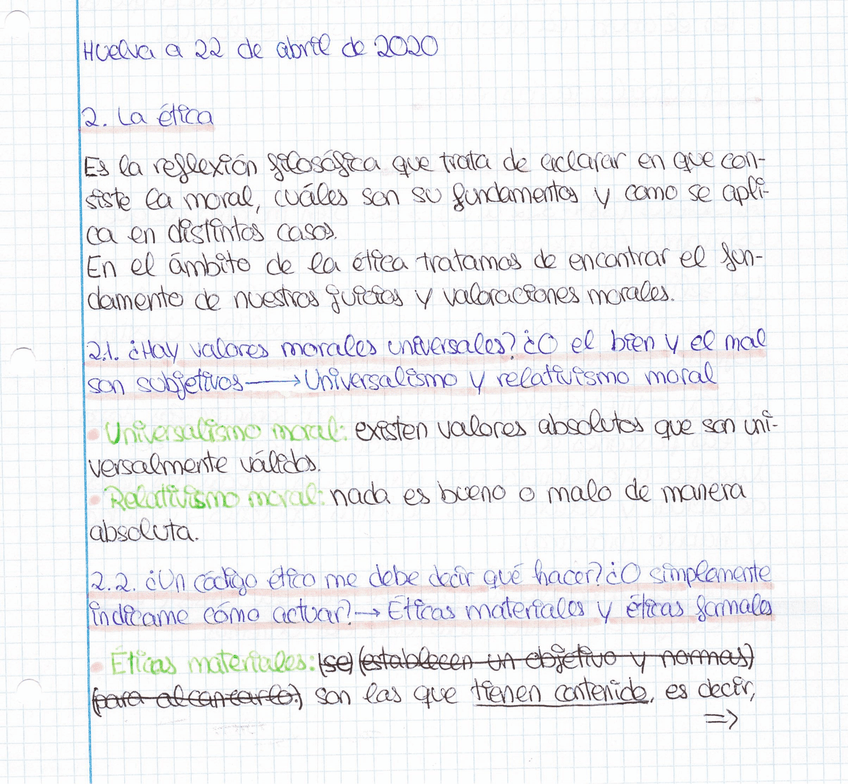 Huelva a 22 de abril de 2020
2. La ética
Es la reflexión filosófica que trata de aclarar en que con-
siste la moral, cuáles son su fundamentos y como se apli-
ca en distintos casos.
En el ámbito de la ética tratamos de encontrar el fun-
damento de nuestros juicios y valoraciones morales.
2.1. ¿Hay valores morales universales? ¿O el bien y el mal
son subjetivos ⟶ Universalismo y relativismo moral
• Universalismo moral: existen valores absolutos que son uni-
versalmente válidos.
• Relativismo moral: nada es bueno o malo de manera
absoluta.
2.2. ¿Un código ético me debe decir qué hacer? ¿O simplemente
indicame cómo actuar? → Éticas materiales y éticas formales
• Éticas materiales: (se) (establecen un objetivo y normas)
(para alcanzarlo.) son las que tienen contenido, es decir,
⇒